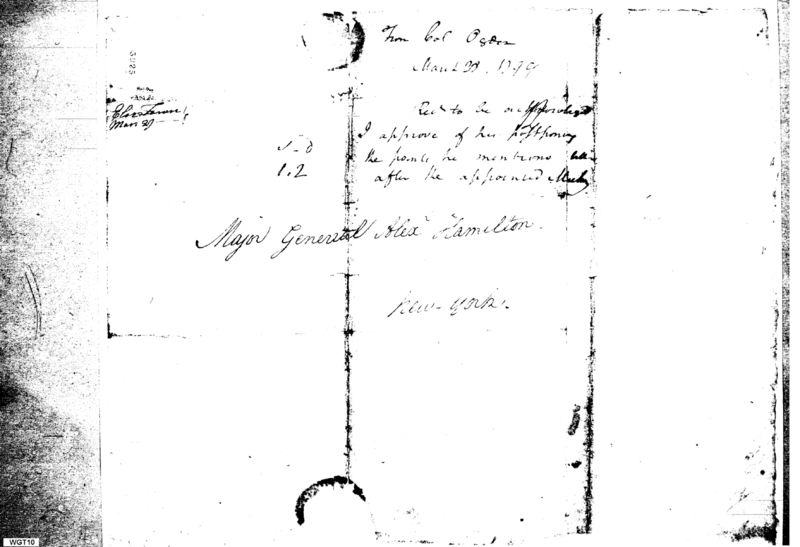 From Col Ogden
March 28. 1799
Recd to be acknowledged
I approve of his postponing
the points he mentions till
after the appointed
Eliz Town
Mar 29
1.2
Major General Alexr Hamilton.
New-York.
WGT10